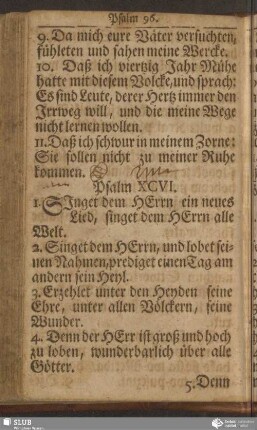 Psalm 96.
9. Da mich eure Väter versuchten,
fühleten und sahen meine Wercke.
10. Daß ich viertzig Jahr Mühe
hatte mit diesem Volcke, und sprach:
Es sind Leute, derer Hertz immer den
Irrweg will, und die meine Wege
nicht lernen wollen.
11. Daß ich schwur in meinem Zorne:
Sie sollen nicht zu meiner Ruhe
kommen.
Psalm XCVI.
1. SInget dem HErrn ein neues
Lied, singet dem HErrn alle
Welt.
2. Singet dem HErrn, und lobet sei-
nen Nahmen, prediget einen Tag am
andern sein Heyl.
3. Erzehlet unter den Heyden seine
Ehre, unter allen Völckern, seine
Wunder.
4. Denn der HErr ist groß und hoch
zu loben, wunderbarlich über alle
Götter.
5. Denn
SLUB